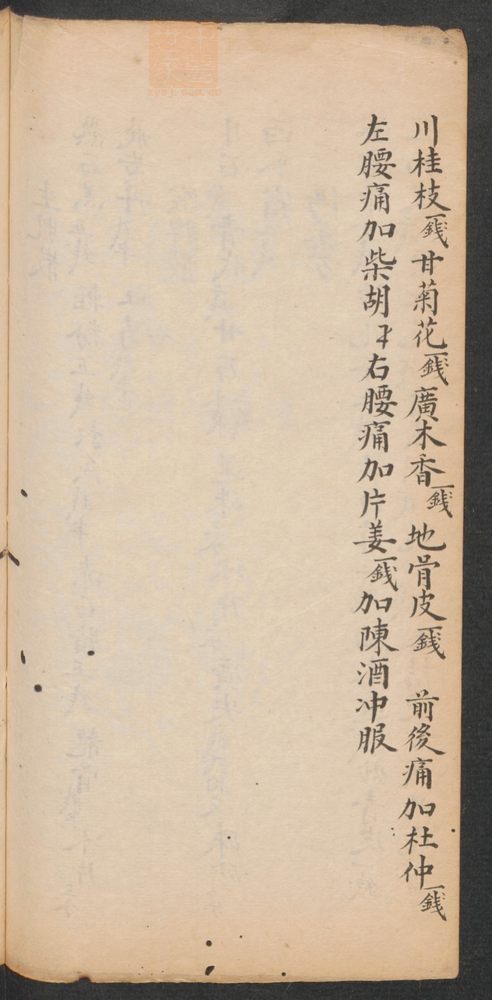 川桂枝一錢甘菊花一錢廣木香一錢地骨皮一錢前後痛加杜仲一錢
左腰痛加柴胡右腰痛加片姜一錢加陳酒冲服